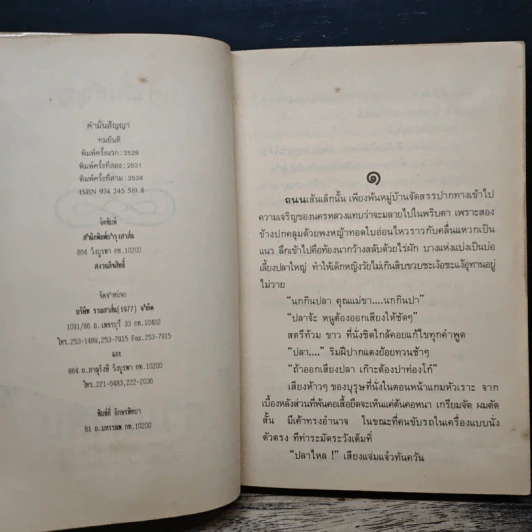 คำมั่นสัญญา
ทมยันตี
พิมพ์ครั้งแรก: 2529
พิมพ์ครั้งที่สอง: 2531
พิมพ์ครั้งที่สาม: 2534
ISBN 974 245 519 8
จัดพิมพ์
สำนักพิมพ์บำรุงสาส์น
864 วังบูรพา กท.10200
สงวนลิขสิทธิ์
จัดจำหน่าย
บริษัท รวมสาส์น(1977) จำกัด
1091/86 ถ.เพชรบุรี 33 กท.10402
โทร.253-1489,253-7915 Fax.253-7915
และ
864 ถ.ภาณุรังษี วังบูรพา กท.10200
โทร.221-6483,222-2036
พิมพ์ที่ อักษรพิทยา
61 ถ.มหรรณพ กท.10200
๑
ถนนเส้นเล็กนั้น เพียงพ้นหมู่บ้านจัดสรรปากทางเข้าไป
ความเจริญของนครหลวงแทบว่าจะมลายไปในพริบตา เพราะสอง
ข้างปกคลุมด้วยพงหญ้าทอดใบอ่อนไหวราวกับคลื่นแหวกเป็น
แนว ลึกเข้าไปคือท้องนากว้างสลับด้วยไร่ผัก บางแห่งแบ่งเป็นบ่อ
เลี้ยงปลาใหญ่ ทำให้เด็กหญิงวัยไม่เกินสิบขวบชะเง้อชะแง้อุทานอยู่
ไม่วาย
“นกกินปลา คุณแม่ขา....นกกินปา”
“ปลาจ้ะ หนูต้องออกเสียงให้ชัดๆ”
สตรีท้วม ขาว ที่นั่งชิดใกล้คอยแก้ไขทุกคำพูด
“ปลา....” ริมฝีปากแดงย้อยทวนช้าๆ
“ถ้าออกเสียงปลา เก๊าะต้องปาท่องโก๋”
เสียงห้าวๆ ของบุรุษที่นั่งในตอนหน้าแกมหัวเราะ จาก
เบื้องหลังส่วนที่พ้นคอเสื้อยืดจะเห็นแค่ต้นคอหนา เกรียมจัด ผมตัด
สั้น มีเค้าทรงอำนาจ ในขณะที่คนขับรถในเครื่องแบบนั่ง
ตัวตรง ทีท่าระมัดระวังเต็มที่
“ปลาไหล !” เสียงแจ่มแจ๋วทันควัน